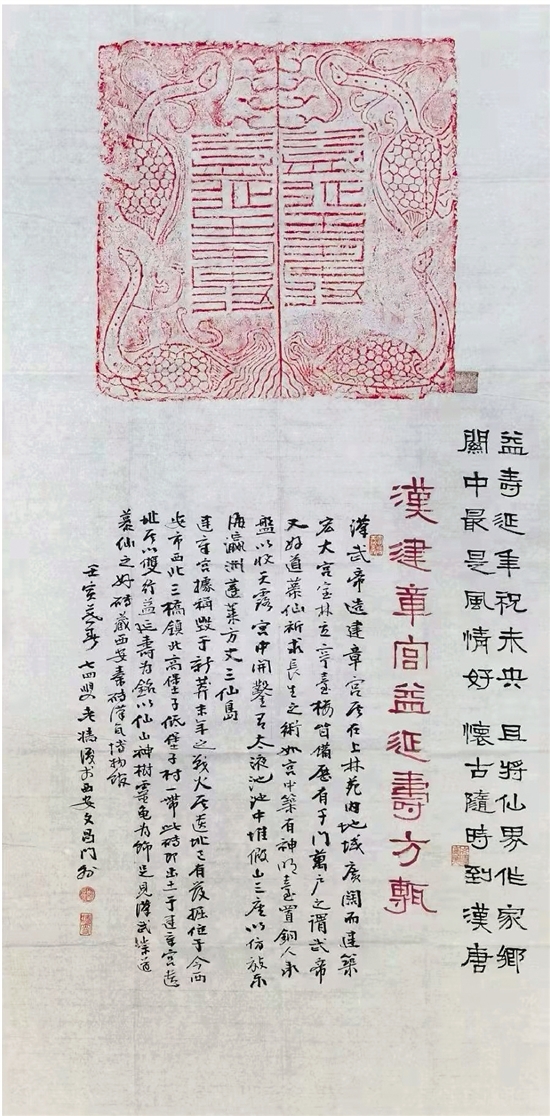 益延壽
益延壽
益壽延年祝未央 且將仙界作家鄉
關中最是風情好 懷古隨時到漢唐
漢建章宮益延壽方甎
漢武帝造建章宮其在上林苑內地域廣闊而建築
宏大宮室林立亭臺樓皆備有千门萬户之謂武帝
又好道慕仙祈求長生之術如宫中築有神明臺置銅人承
盤以收天露宫中開鑿有太液池池中堆假山三座以仿放东
海瀛洲蓬萊方丈三仙島
建章宫據稱毁于新莽末年之戰火其遺址已有發掘位于今西
安市西北三橋鎮北高堡子低堡子村一帶此磚即出土于建章宫遺
址其以雙行益延壽為銘以仙山神樹靈龜為飾足見漢武崇道
慕仙之好磚藏西安秦磚漢瓦博物館
壬寅 七四叟老橋漫书西安文昌門外